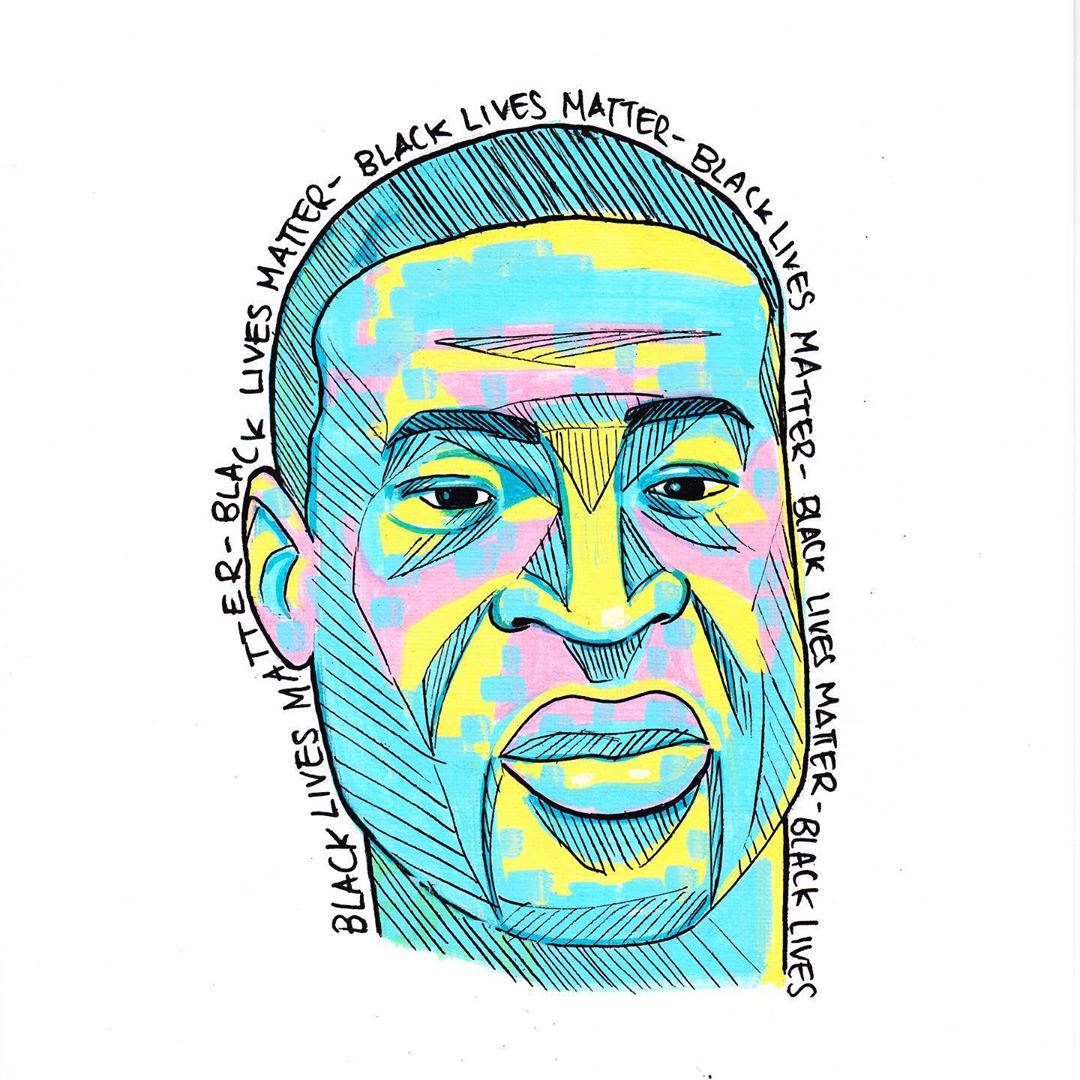 BLACK LIVES MATTER-BLACK LIVES MATTER- BLACK LIVES MATTER- BLACK LIVES MATTER- BLACK LIVES MATTER-BLACK LIVES